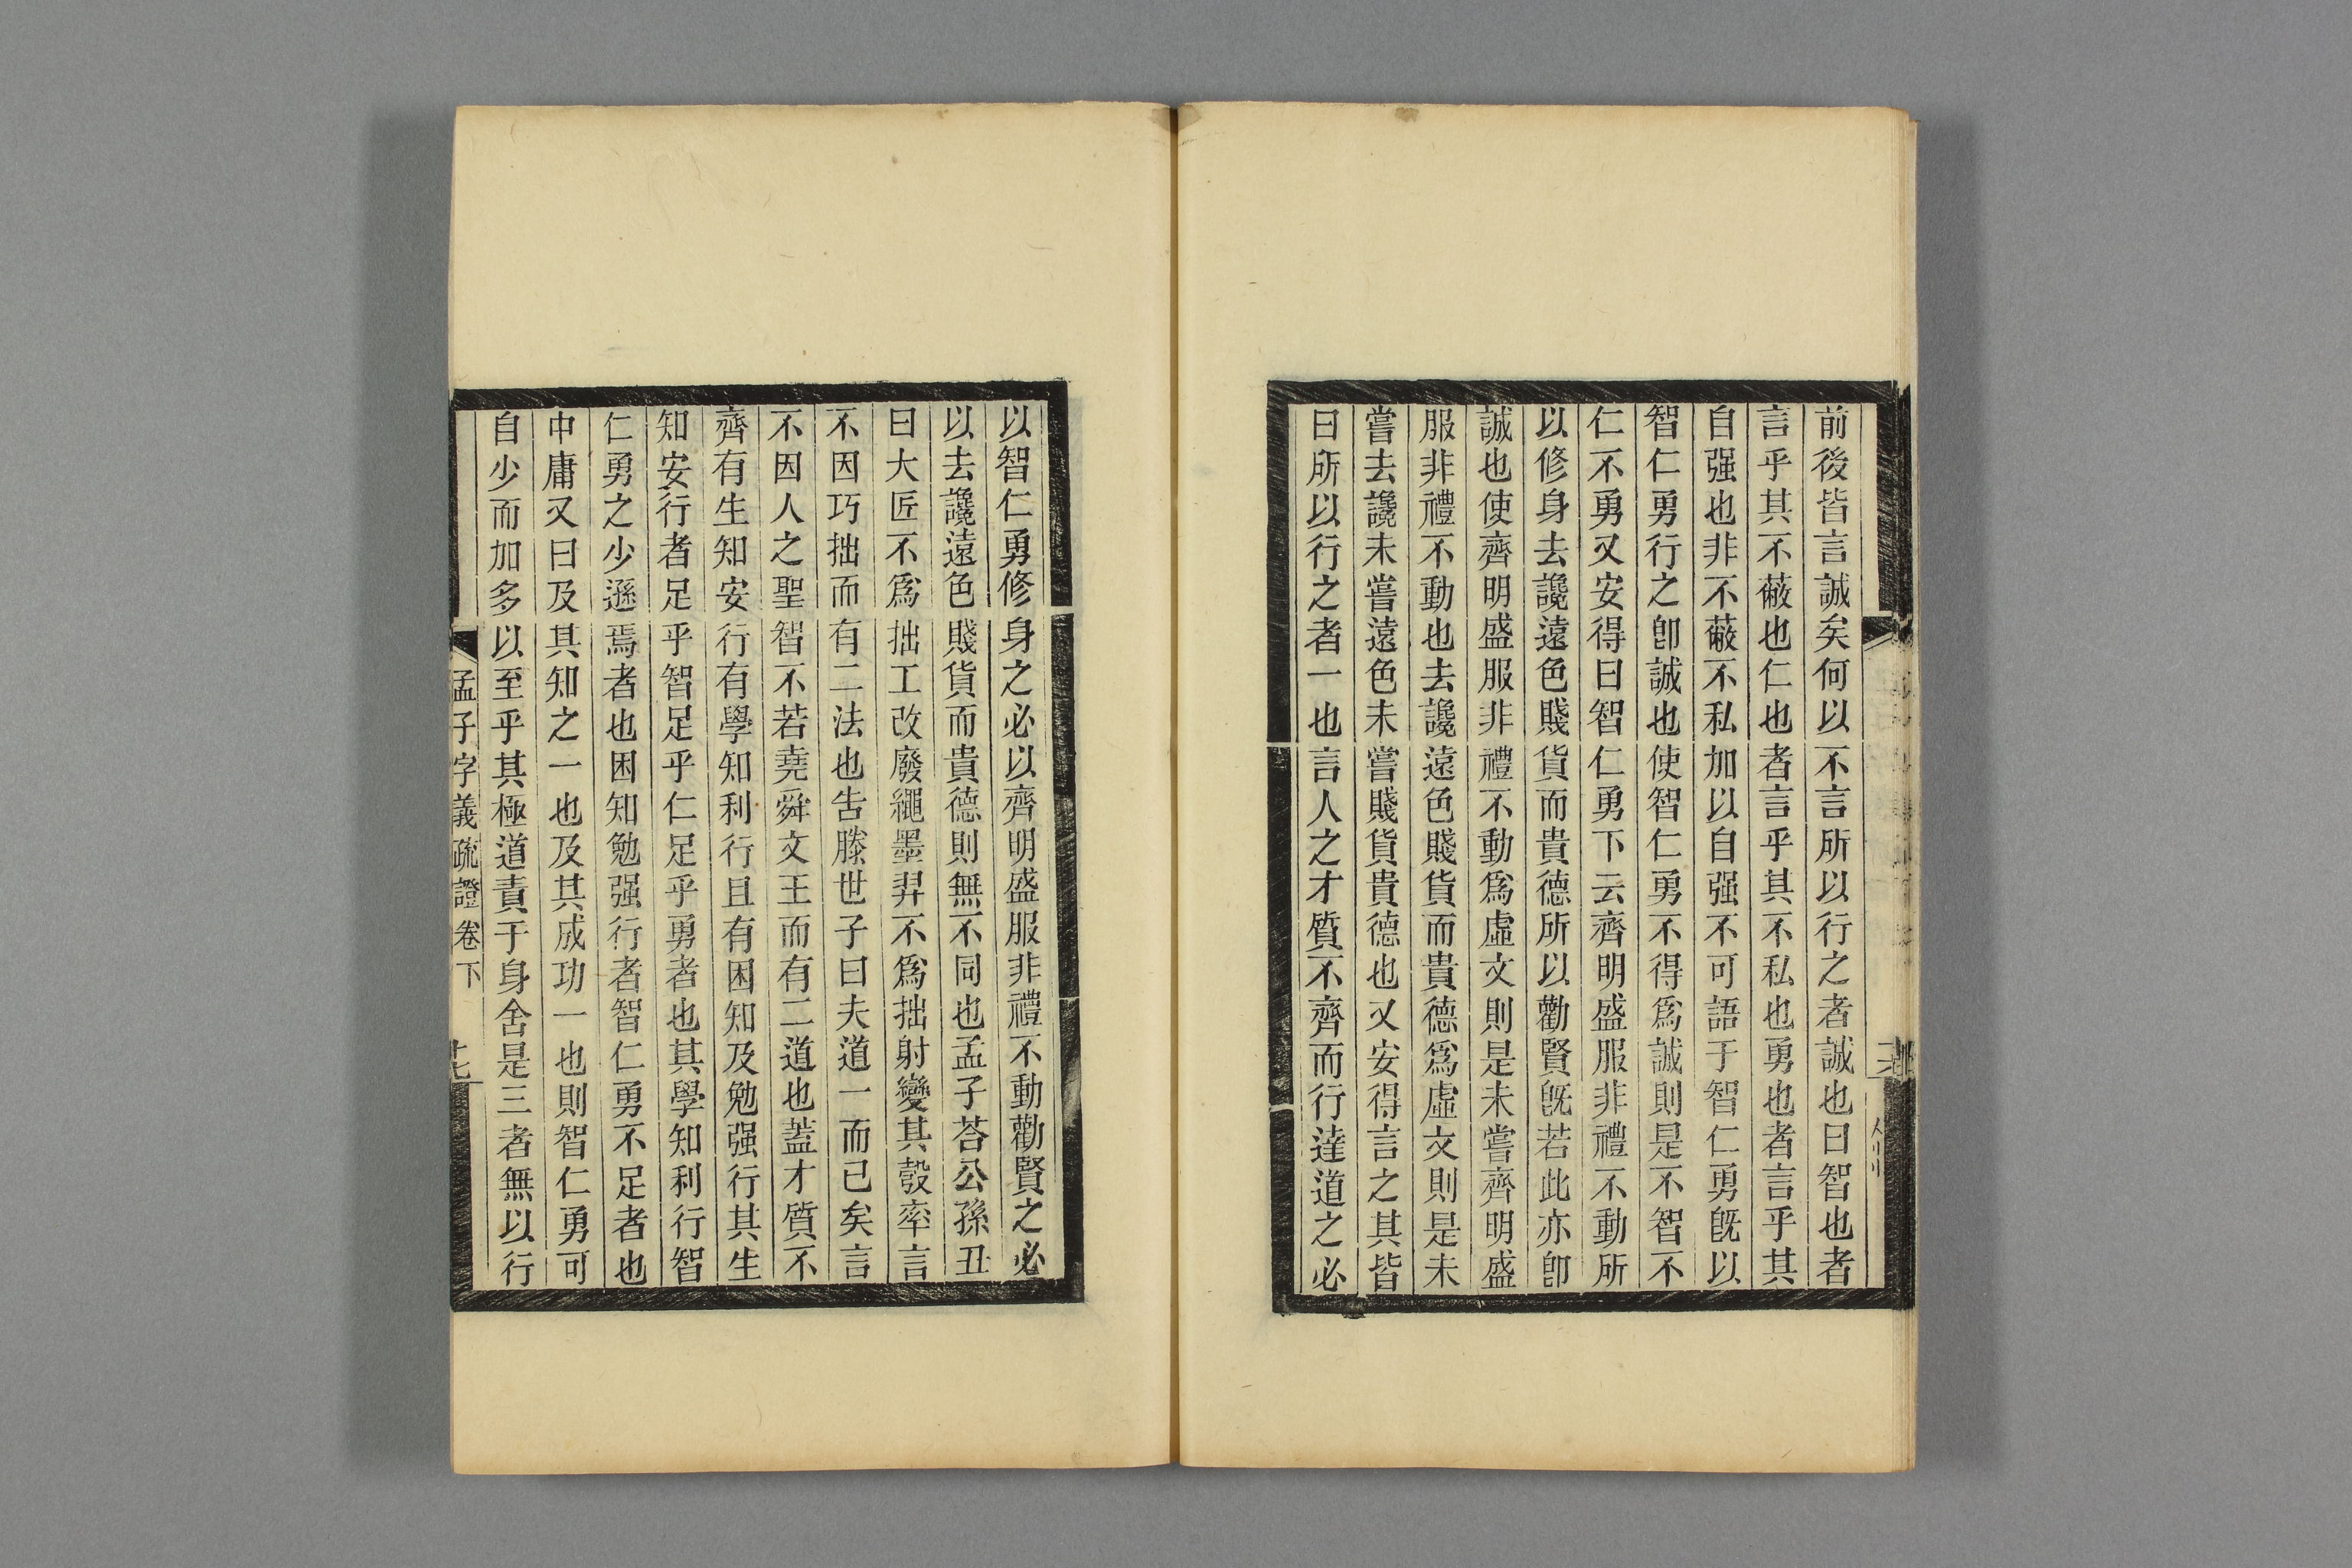 前後皆言誠矣何以不言所以行之者誠也曰智也者
言乎其不蔽也仁也者言乎其不私也勇也者言乎其
自强也非不蔽不私加以自强不可語于智仁勇旣以
智仁勇行之卽誠也使智仁勇不得爲誠則是不智不
仁不勇又安得曰智仁勇下云齊明盛服非禮不動所
以修身去讒遠色賤貨而貴德所以勸賢旣若此亦卽
誠也使齊明盛服非禮不動爲虛文則是未嘗齊明盛
服非禮不動也去讒遠色賤貨而貴德爲虛文則是未
嘗去讒未嘗遠色未嘗賤貨貴德也又安得言之其皆
曰所以行之者一也言人之才質不齊而行達道之必
以智仁勇修身之必以齊明盛服非禮不動勸賢之必
以去讒遠色賤貨而貴德則無不同也孟子荅公孫丑
曰大匠不爲拙工改廢繩墨羿不爲拙射變其彀率言
不因巧拙而有二法也告滕世子曰夫道一而已矣言
不因人之聖智不若堯舜文王而有二道也蓋才質不
齊有生知安行有學知利行且有困知及勉强行其生
知安行者足乎智足乎仁足乎勇者也其學知利行智
仁勇之少遜焉者也困知勉强行者智仁勇不足者也
中庸又曰及其知之一也及其成功一也則智仁勇可
自少而加多以至乎其極道責于身舍是三者無以行
孟子字義疏證卷下
十七